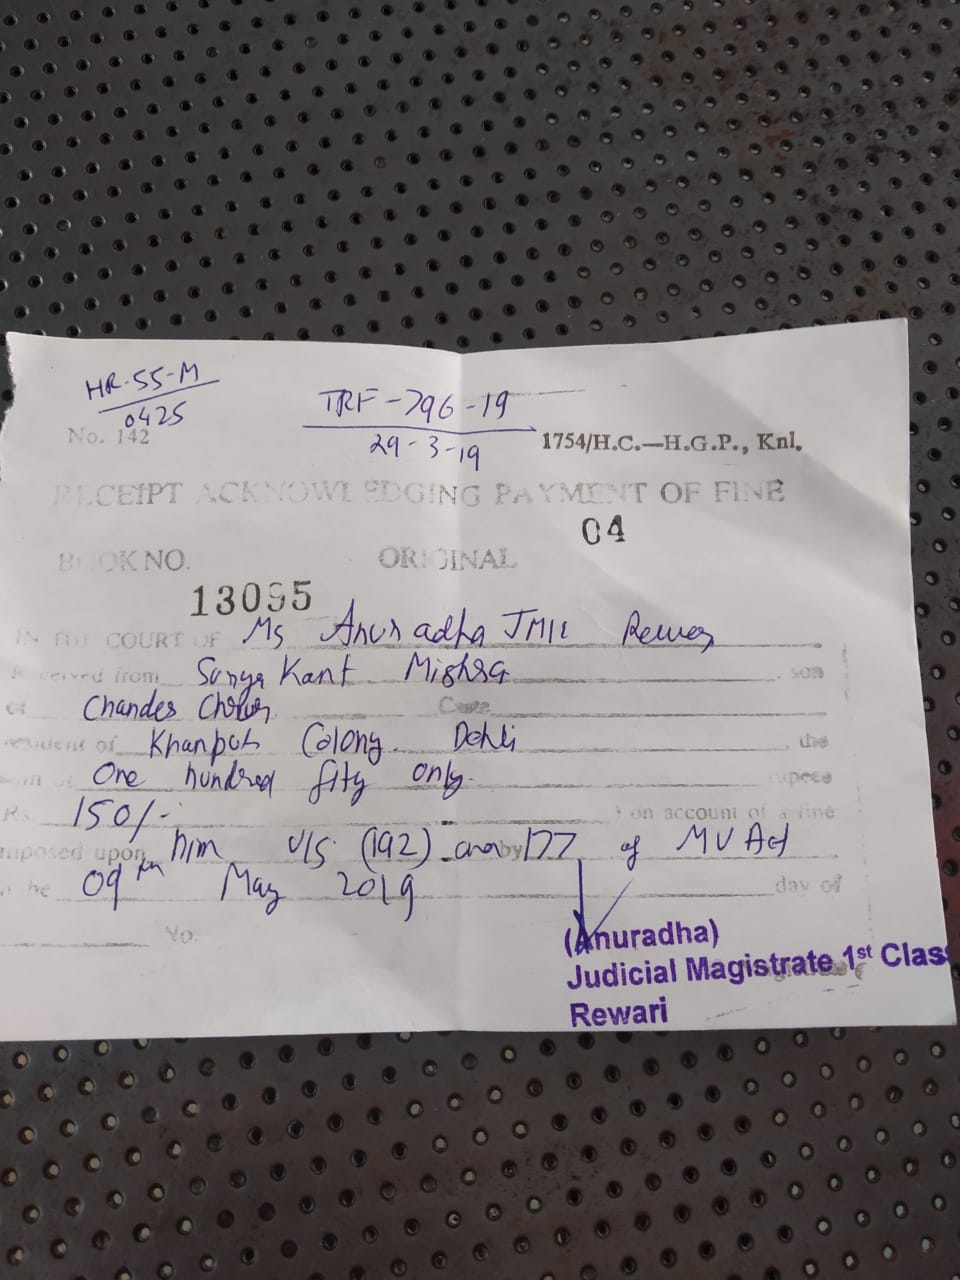 HR-55-M
0425
TRF-796-19
29-3-19
No. 142
1754/H.C.—H.G.P., Knl.
RECEIPT ACKNOWLEDGING PAYMENT OF FINE
04
BOOK NO. ORIGINAL
13095
IN THE COURT OF Ms Anuradha JMIC
Received from Surya Kant Mishra son
of Chander Caste
resident of Khanpur Colony Dehli, the
One hundred fity only. rupees
Rs. 150/- on account of a fine
imposed upon him U/S (192) by 177 of MV Act
the 09th May 2019 day of
(Anuradha)
Judicial Magistrate 1st Clas
Rewari